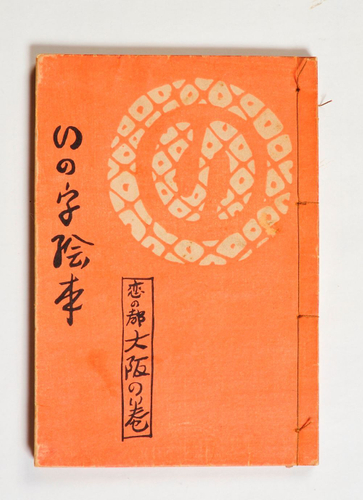 いの字絵本
恋の都 大阪の巻
い